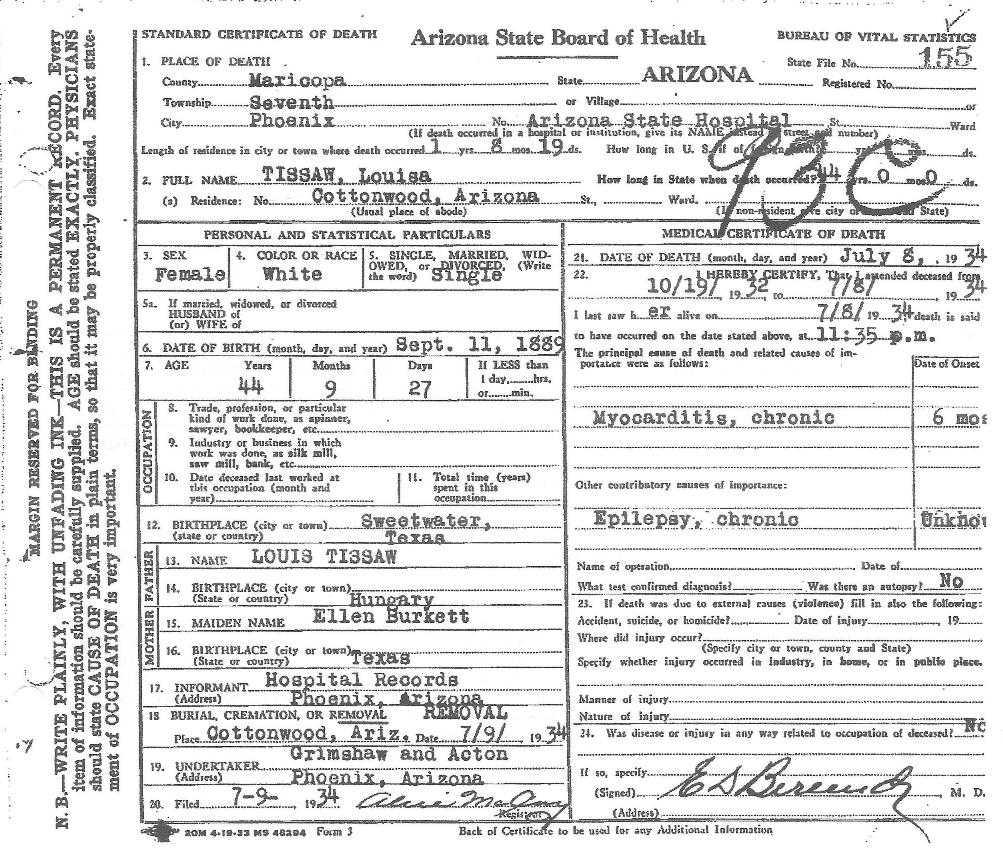 STANDARD CERTIFICATE OF DEATH Arizona State Board of Health BUREAU OF VITAL STATISTICS
1. PLACE OF DEATH State File No. 155
County Maricopa State ARIZONA Registered No.
Township Seventh or Village or
City Phoenix No. Arizona State Hospital St. Ward
(If death occurred in a hospital or institution, give its NAME instead of street and number)
Length of residence in city or town where death occurred 1 yrs. 8 mos. 19 ds. How long in U. S. if of yrs. mos. ds.
93C
2. FULL NAME TISSAW, Louisa How long in State when death occurred? 44 yrs. 0 mos. 0 ds.
(a) Residence: No. Cottonwood, Arizona St., Ward.
(Usual place of abode) (If non-resident give city or State)
PERSONAL AND STATISTICAL PARTICULARS
3. SEX Female
4. COLOR OR RACE White
5. SINGLE, MARRIED, WIDOWED, or DIVORCED, (Write the word) Single
5a. If married, widowed, or divorced
HUSBAND of
(or) WIFE of
6. DATE OF BIRTH (month, day, and year) Sept. 11, 1889
7. AGE Years Months Days If LESS than
44 9 27 1 day, hrs.
or min.
OCCUPATION
8. Trade, profession, or particular
kind of work done, as spinner,
sawyer, bookkeeper, etc.
9. Industry or business in which
work was done, as silk mill,
saw mill, bank, etc.
10. Date deceased last worked at
this occupation (month and
year)
11. Total time (years)
spent in this
occupation
12. BIRTHPLACE (city or town) Sweetwater,
(state or country) Texas
FATHER
13. NAME LOUIS TISSAW
14. BIRTHPLACE (city or town)
(State or country) Hungary
MOTHER
15. MAIDEN NAME Ellen Burkett
16. BIRTHPLACE (city or town)
(State or country) Texas
17. INFORMANT Hospital Records
(Address) Phoenix, Arizona
18 BURIAL, CREMATION, OR REMOVAL REMOVAL
Place Cottonwood, Ariz. Date 7/9/ 1934
19. UNDERTAKER Grimshaw and Acton
(Address) Phoenix, Arizona
20. Filed 7-9- 1934
Registrar
MEDICAL CERTIFICATE OF DEATH
21. DATE OF DEATH (month, day, and year) July 8, 1934
22. I HEREBY CERTIFY, That I attended deceased from
10/19/ 1932 to 7/8/ 1934
I last saw her alive on 7/8/ 1934 death is said
to have occurred on the date stated above, at 11:35 p.m.
The principal cause of death and related causes of im-
portance were as follows: Date of Onset
Myocarditis, chronic 6 mos
Other contributory causes of importance:
Epilepsy, chronic Unknow
Name of operation Date of
What test confirmed diagnosis? Was there an autopsy? No
23. If death was due to external causes (violence) fill in also the following:
Accident, suicide, or homicide? Date of injury 19
Where did injury occur?
(Specify city or town, county and State)
Specify whether injury occurred in industry, in home, or in public place.
Manner of injury
Nature of injury
24. Was disease or injury in any way related to occupation of deceased? No
If so, specify
(Signed) M. D.
(Address)
20M 4-19-33 MS 48294 Form 3 Back of Certificate to be used for any Additional Information
MARGIN RESERVED FOR BINDING
N. B.—WRITE PLAINLY, WITH UNFADING INK—THIS IS A PERMANENT RECORD. Every
item of information should be carefully supplied. AGE should be stated EXACTLY, PHYSICIANS
should state CAUSE OF DEATH in plain terms, so that it may be properly classified. Exact state-
ment of OCCUPATION is very important.